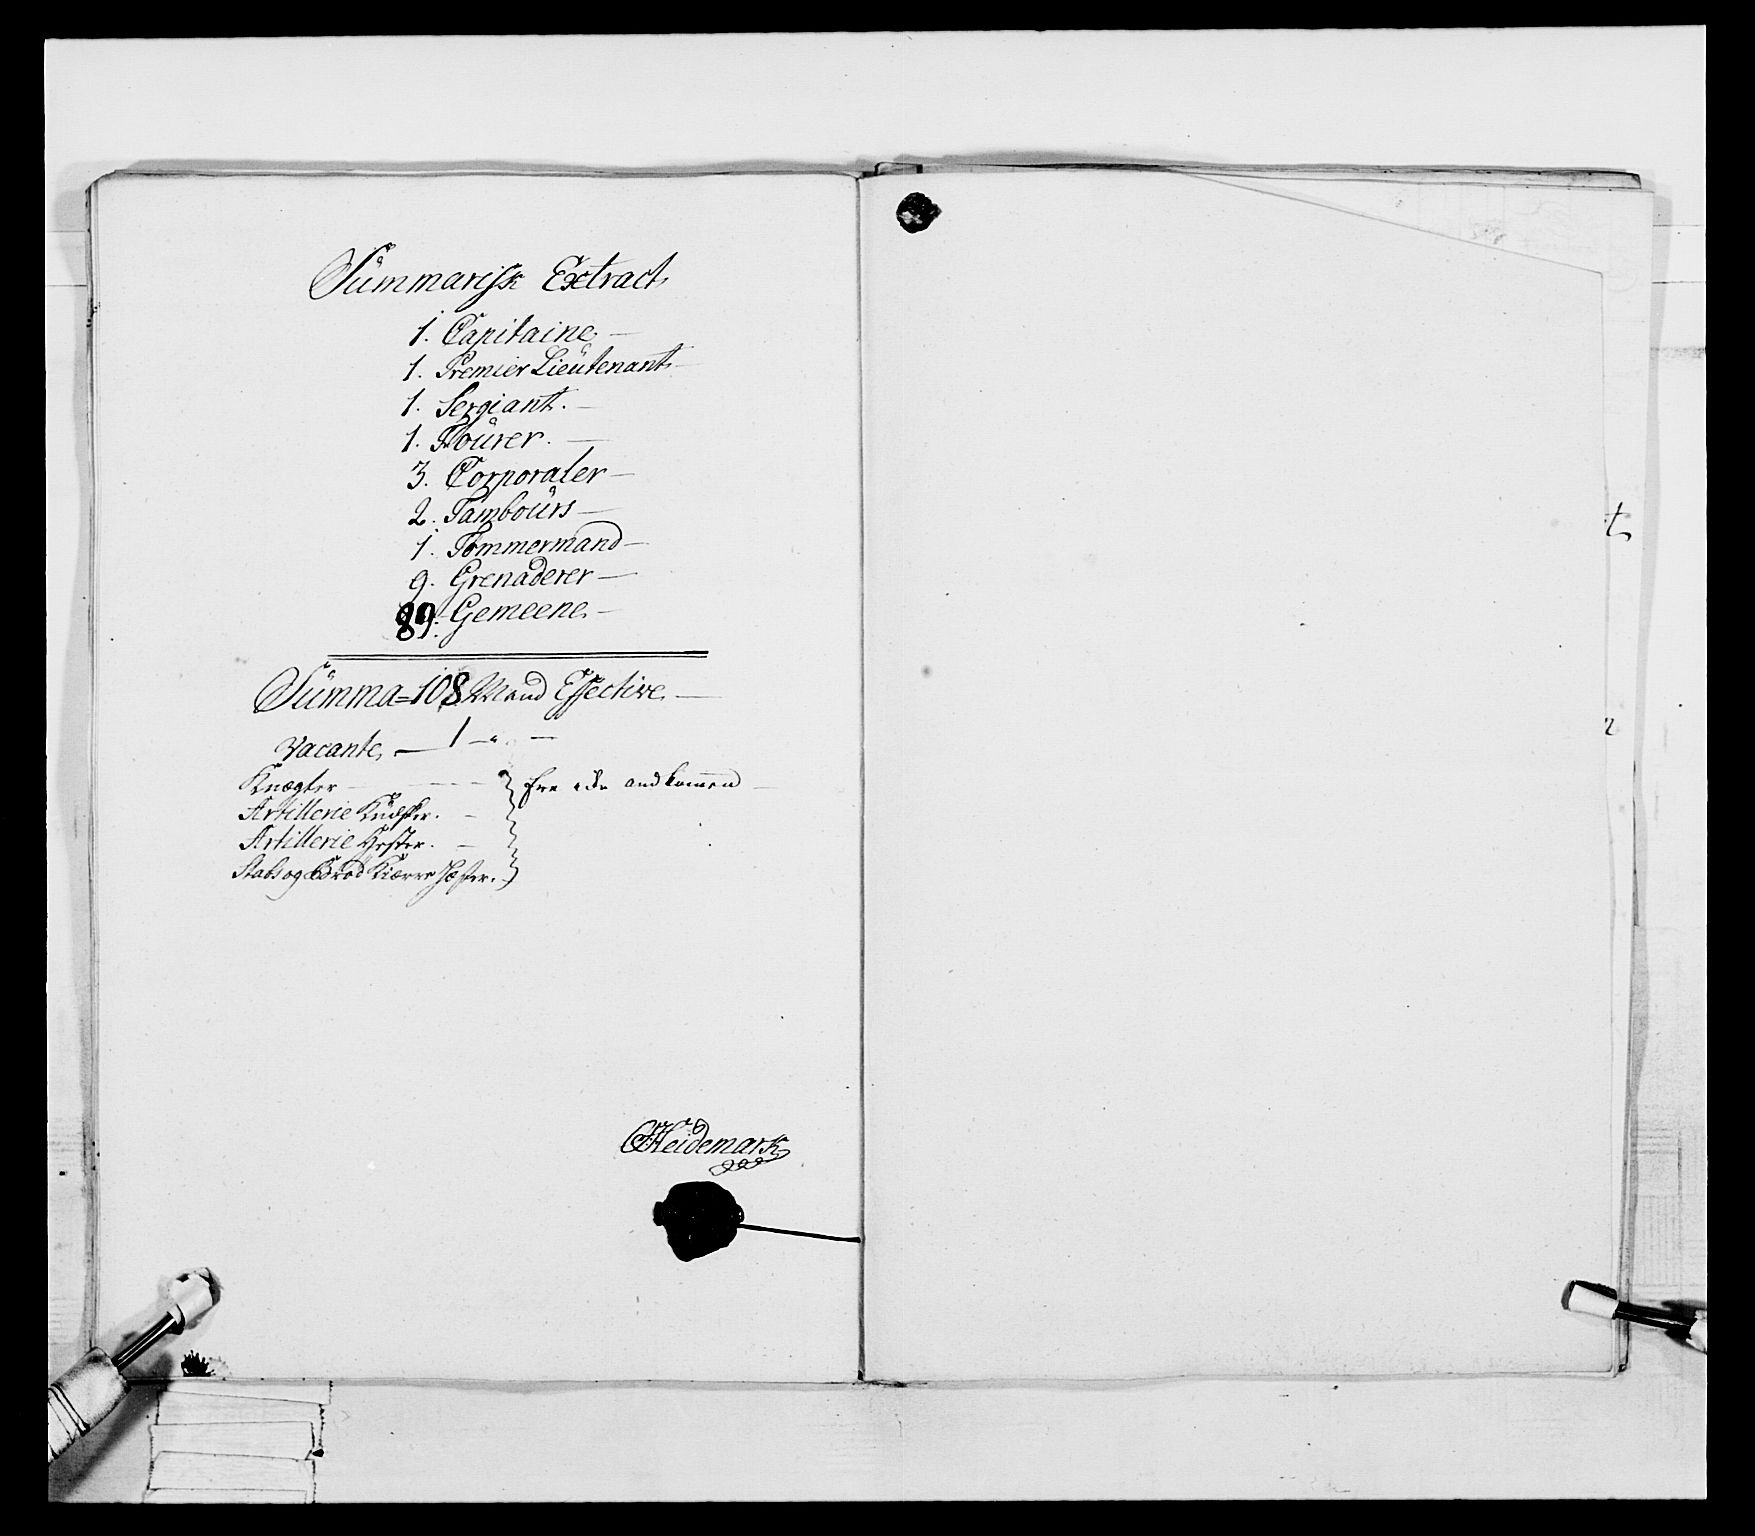 Summarisk Extract
1. Capitaine
1. Premier Lieutenant
1. Sergiant.
1. Fourer.
3. Corporaler
2. Tambours
1. Tømmermand
9. Grenaderer
89. Gemeene
Summa = 108 Mand Effective
Vacante, — 1 — " —
Knægter
Artillerie Kudsker.
Artillerie Hester.
Stabs og Brød Kiærre Hæster.
Heidemark